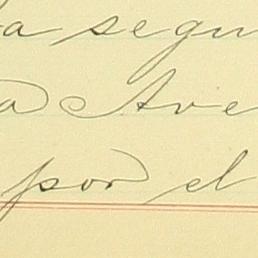 a segu
a Ave
por el